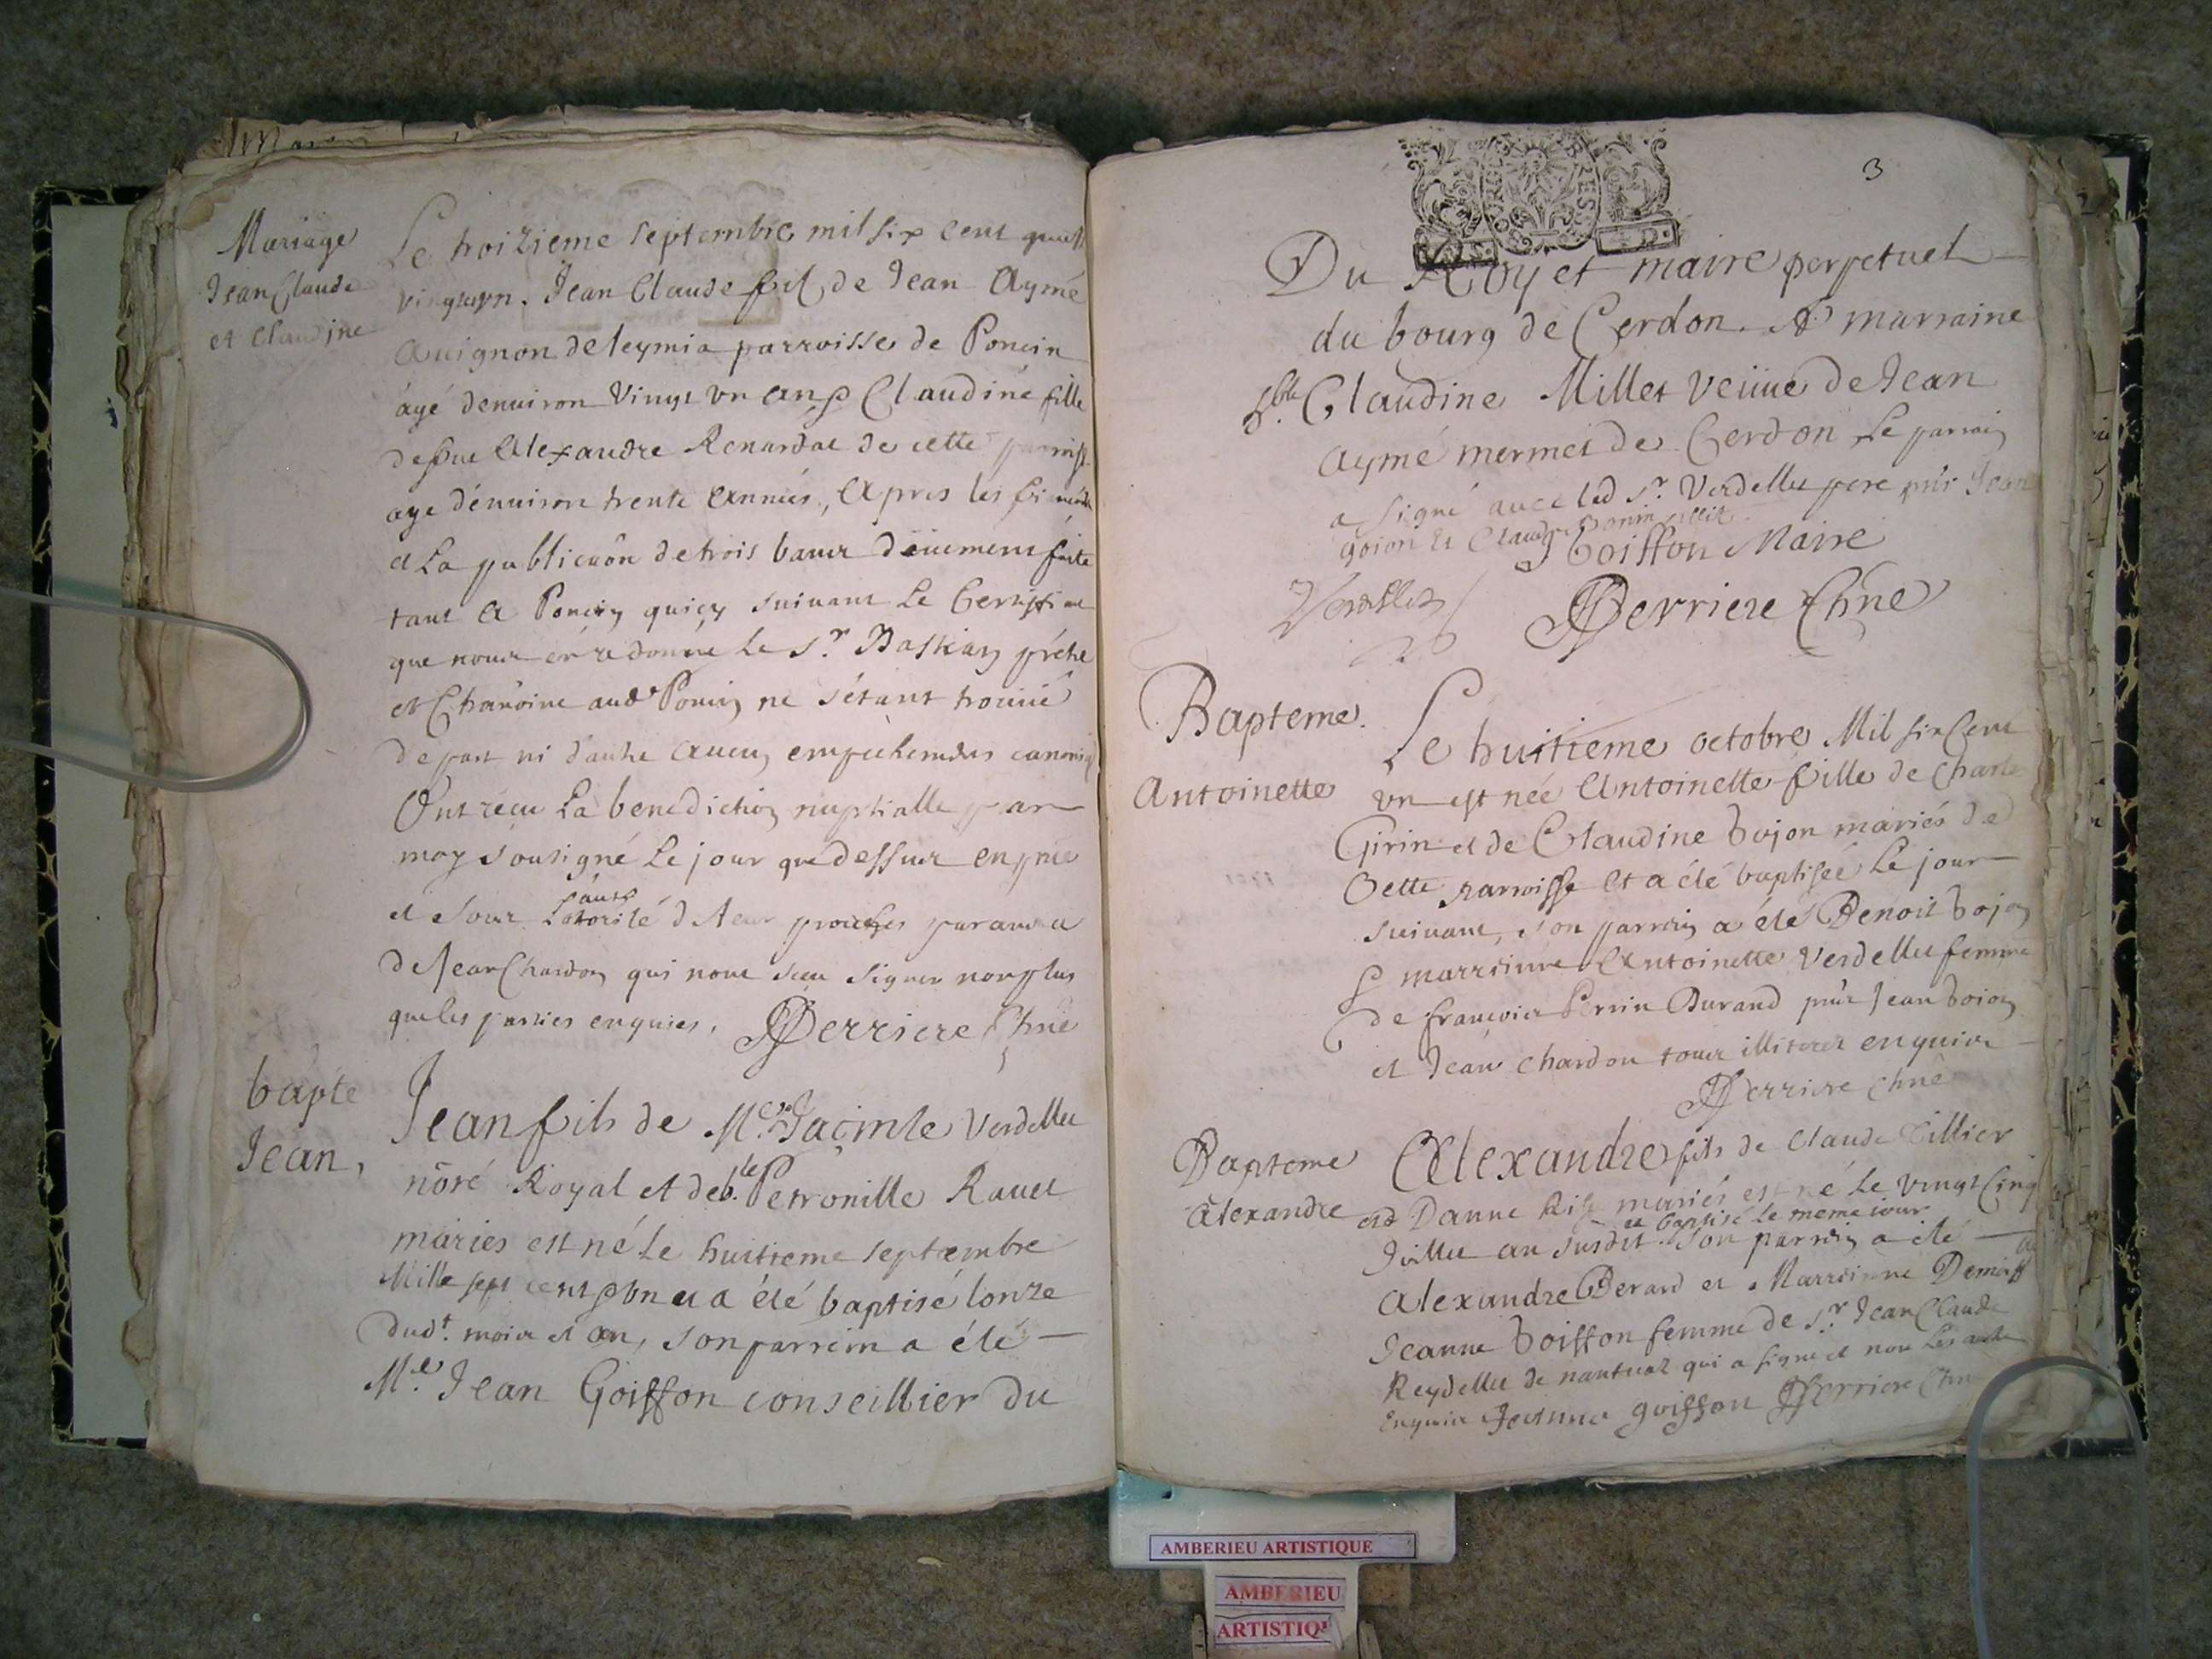 Mariage
Jean Claude
et Claudine
Le troizieme septembre mil six cent quatt
vingtun. Jean Claude fil de Jean Aymé
Auignon deleymia parroisse de Poncin
âgé denuiron Vingt vn ans Claudine fille
defeu Alexandre Renardat de cette
aye dénuiron trente Années, Apres les
et La publicaôn detrois bans düement faite
tant A Poncin quicy suiuant Le Certificat
que nous en a donné Le Sr. Bastian prêtre
et Chanoine aud Poncin ne sétant trouué
depart ni dautre Aucun empechement canoniq
Ont reçu La benediction nuptialle par
moy sousigné Le jour que dessus en pnce
et sour Lautorité de leur proches parans et
de Jean Chardon qui nont sceu signer nonplus
queles parties enquises. Perriere Chne
bapte
Jean,
Jean fils de Me. Jacinte Verdellet
nôré Royal et de ble. Petronille Rauet
mariés est né Le huitieme septembre
Mille sept cent vn et a été baptisé lonze
dudt. mois et an, son parrein a été
Me. Jean Goiffon conseillier du
3
Du Roy et maire perpetuel
du bourg de Cerdon. & marraine
Claudine Millet veüue de Jean
Aymé mermet de Cerdon Le parrain
a signé auec led Sr. Verdellet pere pnt Jean
gojon et Claude Bonin illit
Goiffon Maire
Verdellet
Perriere Chne
Bapteme.
Antoinette
Le huitieme octobre Mil sixCent
vn est née Antoinette fille de Charle
Girin et de Claudine Gojon mariés de
Cette parroisse et a été baptisée Le jour
suiuant, son parrein a été Benoit Gojon
& marreinne Antoinette Verdellet femme
de francois Perrin Durand pnt Jean Gojon
et Jean Chardon tous illiteres enquis
Perriere Chne
Bapteme
Alexandre
Alexandre fils de Claude Tillier
et Danne mariés est né Le vingt Cinq
et baptisé Le meme jour
Juillet an susdit. Son parrein a été
Alexandre Berard et Marreinne Demoiss
Jeanne Goiffon femme de Sr. Jean Claude
Reydellet de nantuaz qui a signé et non Les autre
Enquis Jeanne goiffon Perriere Chne
AMBERIEU ARTISTIQUE
AMBERIEU
ARTISTIQU